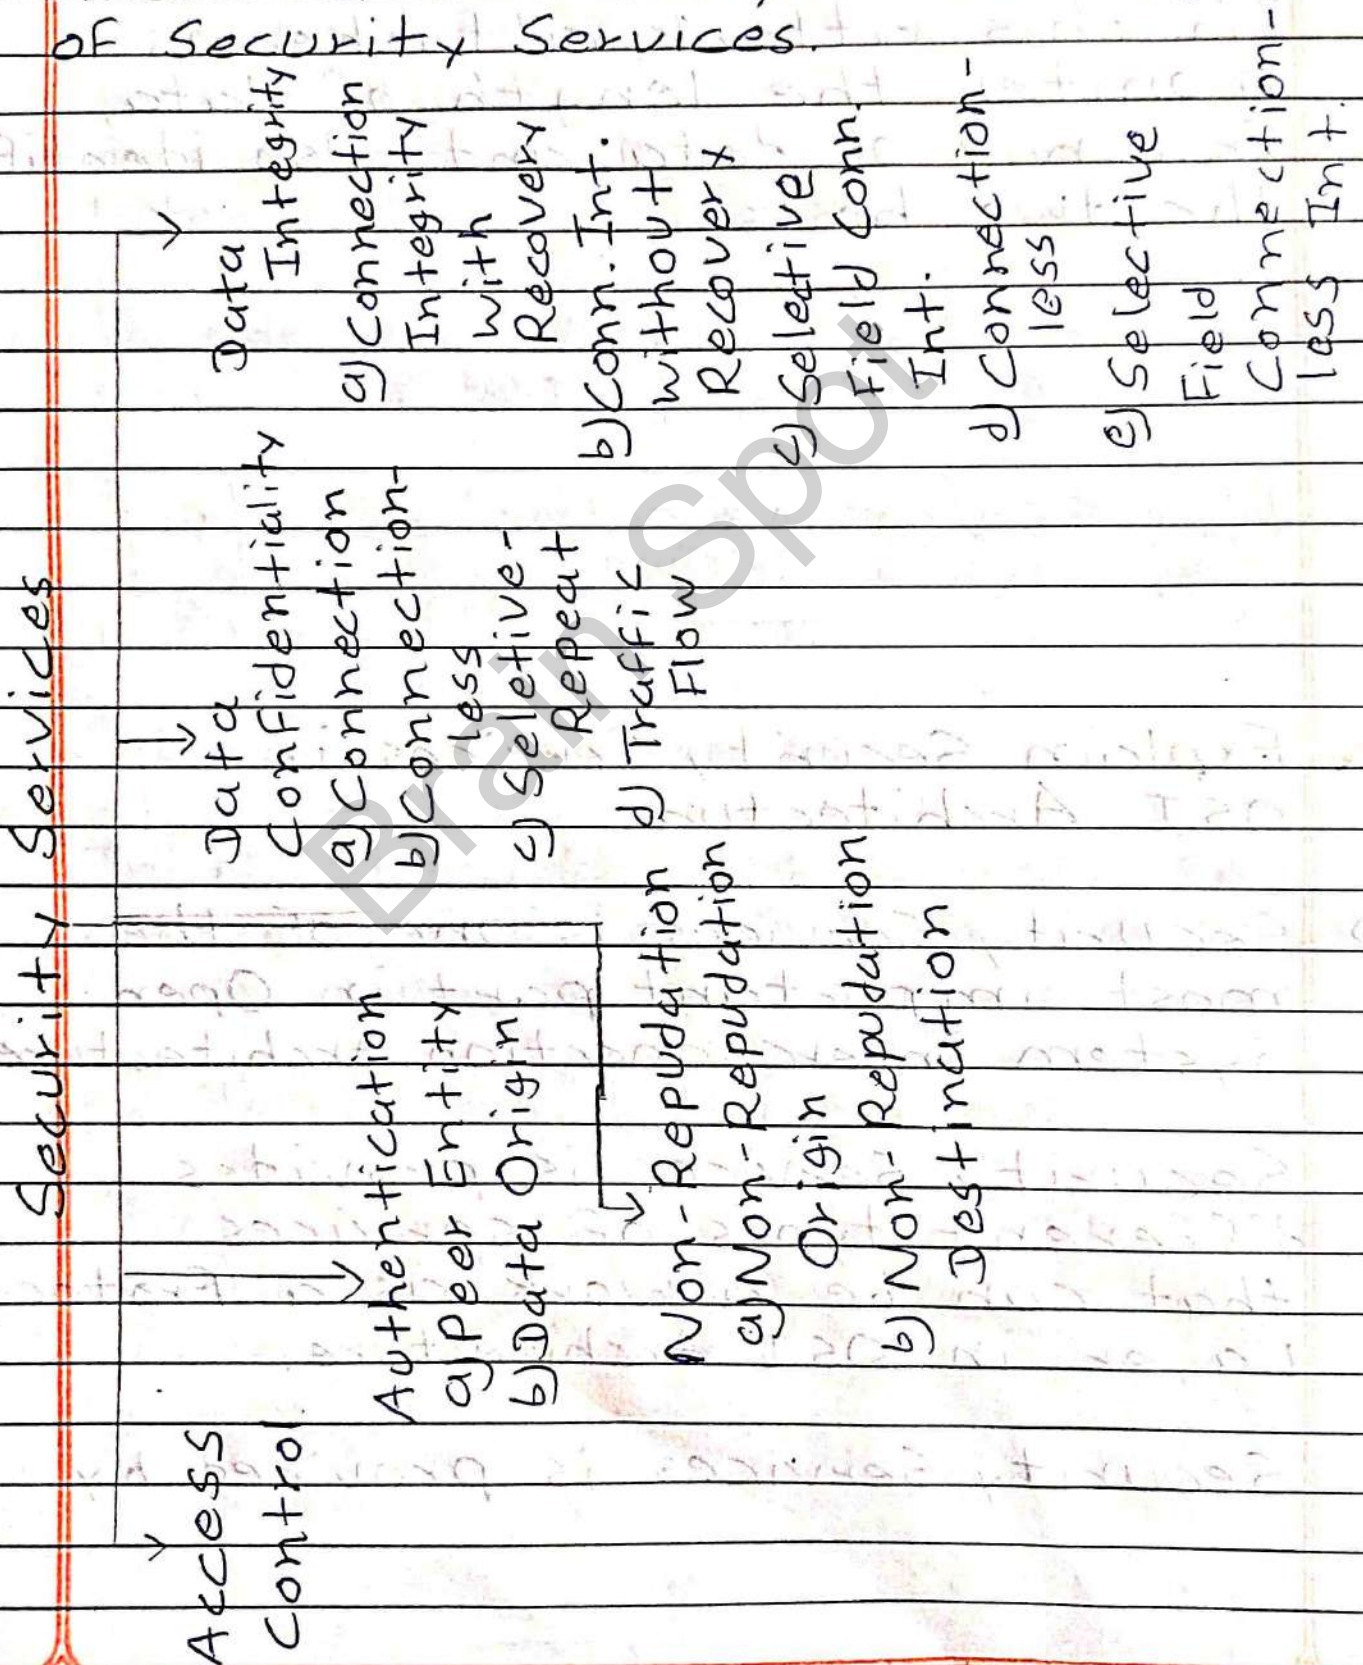 of Security Services.
Security Services
Access
Control
Authentication
a) Peer Entity
b) Data Origin
Non-Repudation
a) Non-Repudation
Origin
b) Non-Repudation
Destination
Data
Confidentiality
a) Connection
b) Connection-
less
c) Seletive-
Repeat
d) Traffic
Flow
Data
Integrity
a) Connection
Integrity
with
Recovery
b) Conn. Int.
without
Recovery
c) Selective
Field Conn.
Int.
d) Connection-
less
e) Selective
Field
Connection-
less Int.
Brain Spot